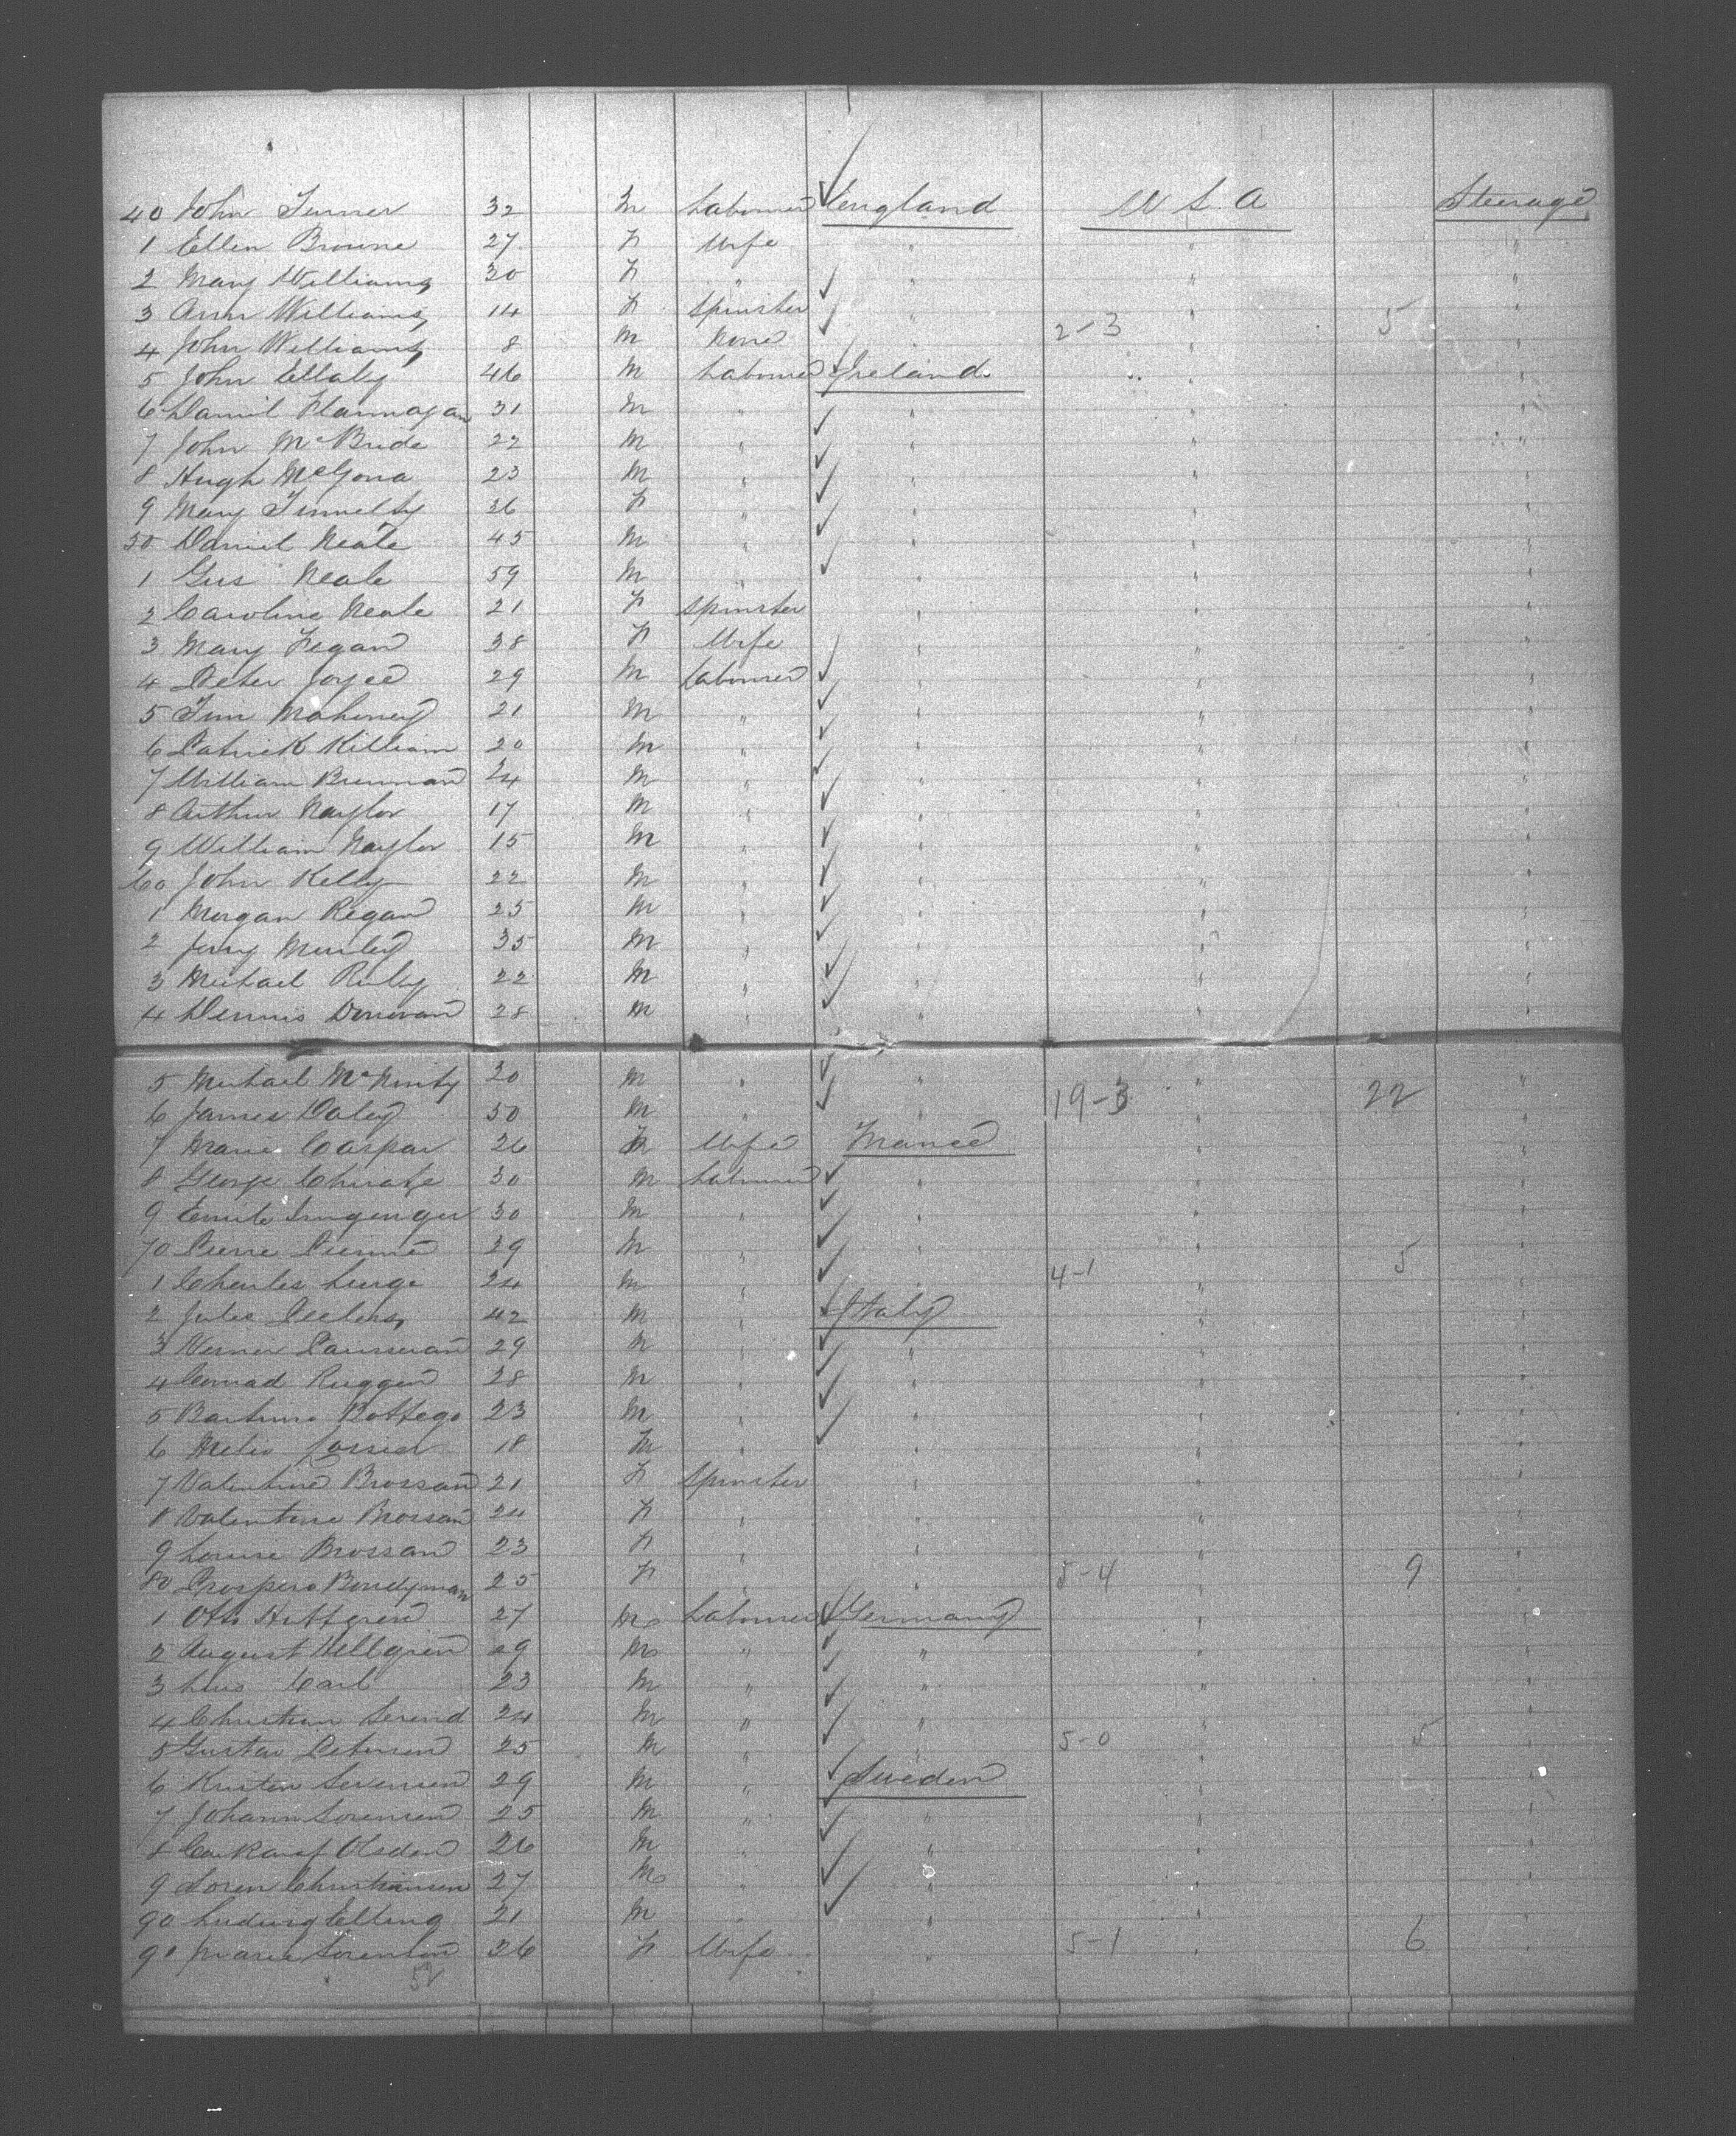 40 John Turner 32 M Labourer England U S A Steerage
1 Ellen Browne 27 F Wife " " "
2 Mary Williams 30 F " " " "
3 Ann Williams 14 F Spinster " " "
4 John Williams 8 M None " 2-3 " 5 "
5 John 46 M Labourer Ireland " "
6 Daniel Flannagan 31 M " " " "
7 John McBride 22 M " " " "
8 Hugh McGona 23 M " " " "
9 Mary 36 F " " " "
50 Daniel Neale 45 M " " " "
1 Gus Neale 59 M " " " "
2 Caroline Neale 21 F Spinster " " "
3 Mary Fegan 38 F Wife " " "
4 Peter Joyce 29 M Labourer " " "
5 Tim Mahoney 21 M " " " "
6 Patrick Killiam 20 M " " " "
7 William Brennan 24 M " " " "
8 Arthur Naylor 17 M " " " "
9 William Naylor 15 M " " " "
60 John Kelly 22 M " " " "
1 Morgan Regan 25 M " " " "
2 Jerry 35 M " " " "
3 Michael 22 M " " " "
4 Dennis Donovan 28 M " " " "
5 Michael 30 M " " " "
6 James Daley 50 M " " 19-3 " 22 "
7 Marie Caspar 26 F Wife France " "
8 George 30 M Labourer " " "
9 Emile 30 M " " " "
70 Pierre Pierme 39 M " " " "
1 Charles 24 M " " 4-1 " 5 "
2 Jules Peeters 42 M " Italy " "
3 29 M " " " "
4 Conrad 28 M " " " "
5 Bottego 23 M " " " "
6 18 M " " " "
7 Valentine Brossan 21 F Spinster " " "
8 Valentine Brossan 24 F " " " "
9 Louise Brossan 23 F " " " "
80 Prospero 25 F " " 5-4 " 9 "
1 Otto 27 M Labourer Germany " "
2 August Hellgren 29 M " " " "
3 Carl 23 M " " " "
4 Christian 24 M " " " "
5 Gustav Petersen 25 M " " 5-0 " 5 "
6 29 M " Sweden " "
7 Johann Sorensen 25 M " " " "
8 Olsden 26 M " " " "
9 Soren Christiansen 27 M " " " "
90 Ludwig Elling 21 M " " " "
91 Marie 26 F Wife " 5-1 " 6 "
52